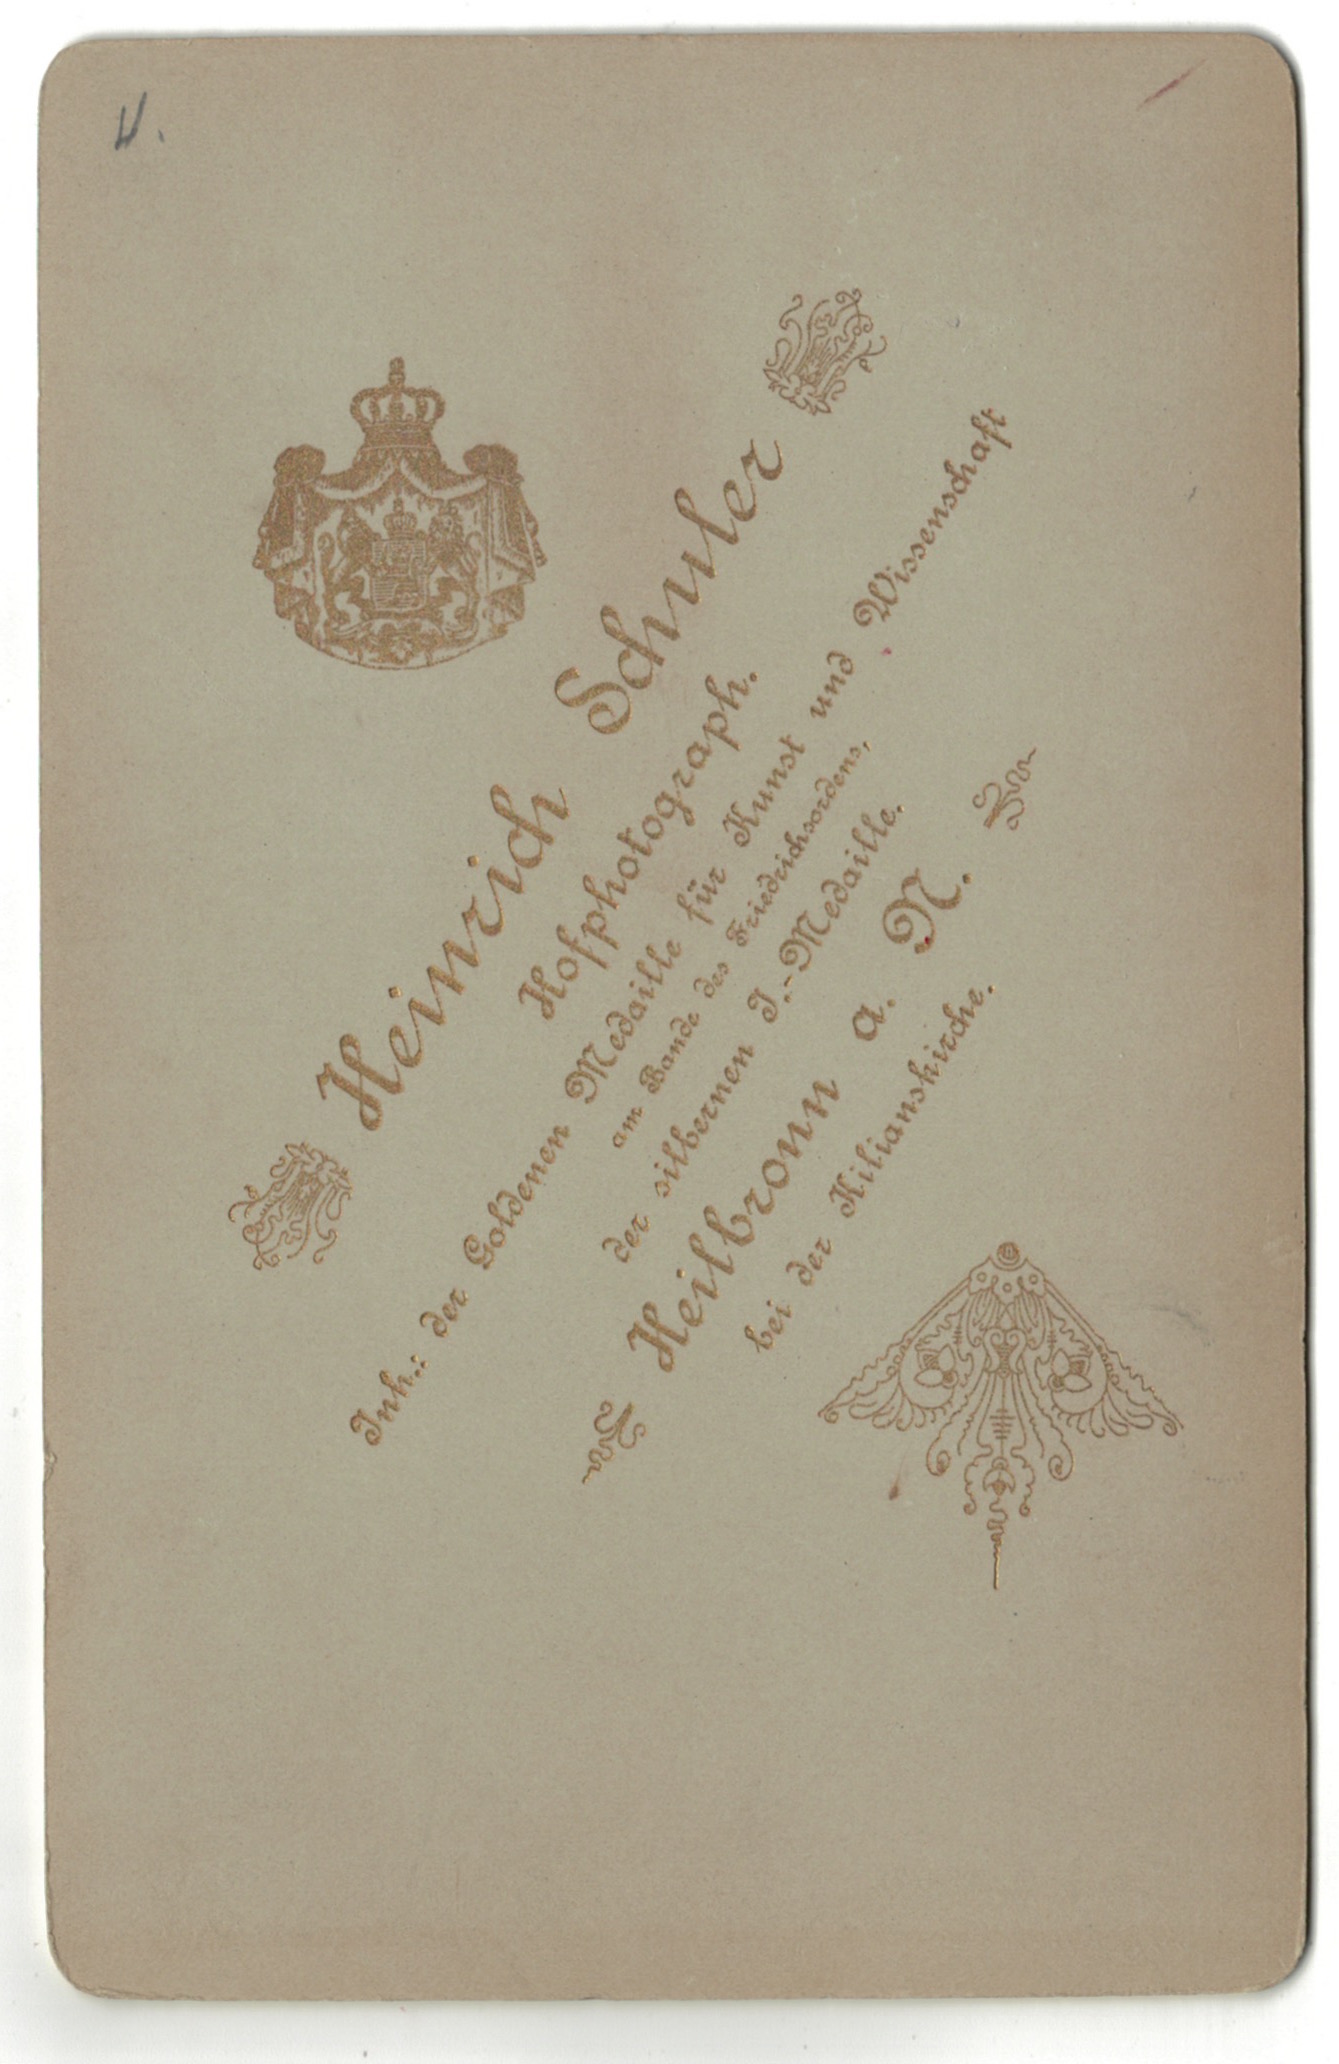 Heinrich Schuler
Hofphotograph.
Inh.: der Goldenen Medaille für Kunst und Wissenschaft
am Bande des Friedrichsordens,
der silbernen J.-Medaille.
Heilbronn a. N.
bei der Kilianskirche.